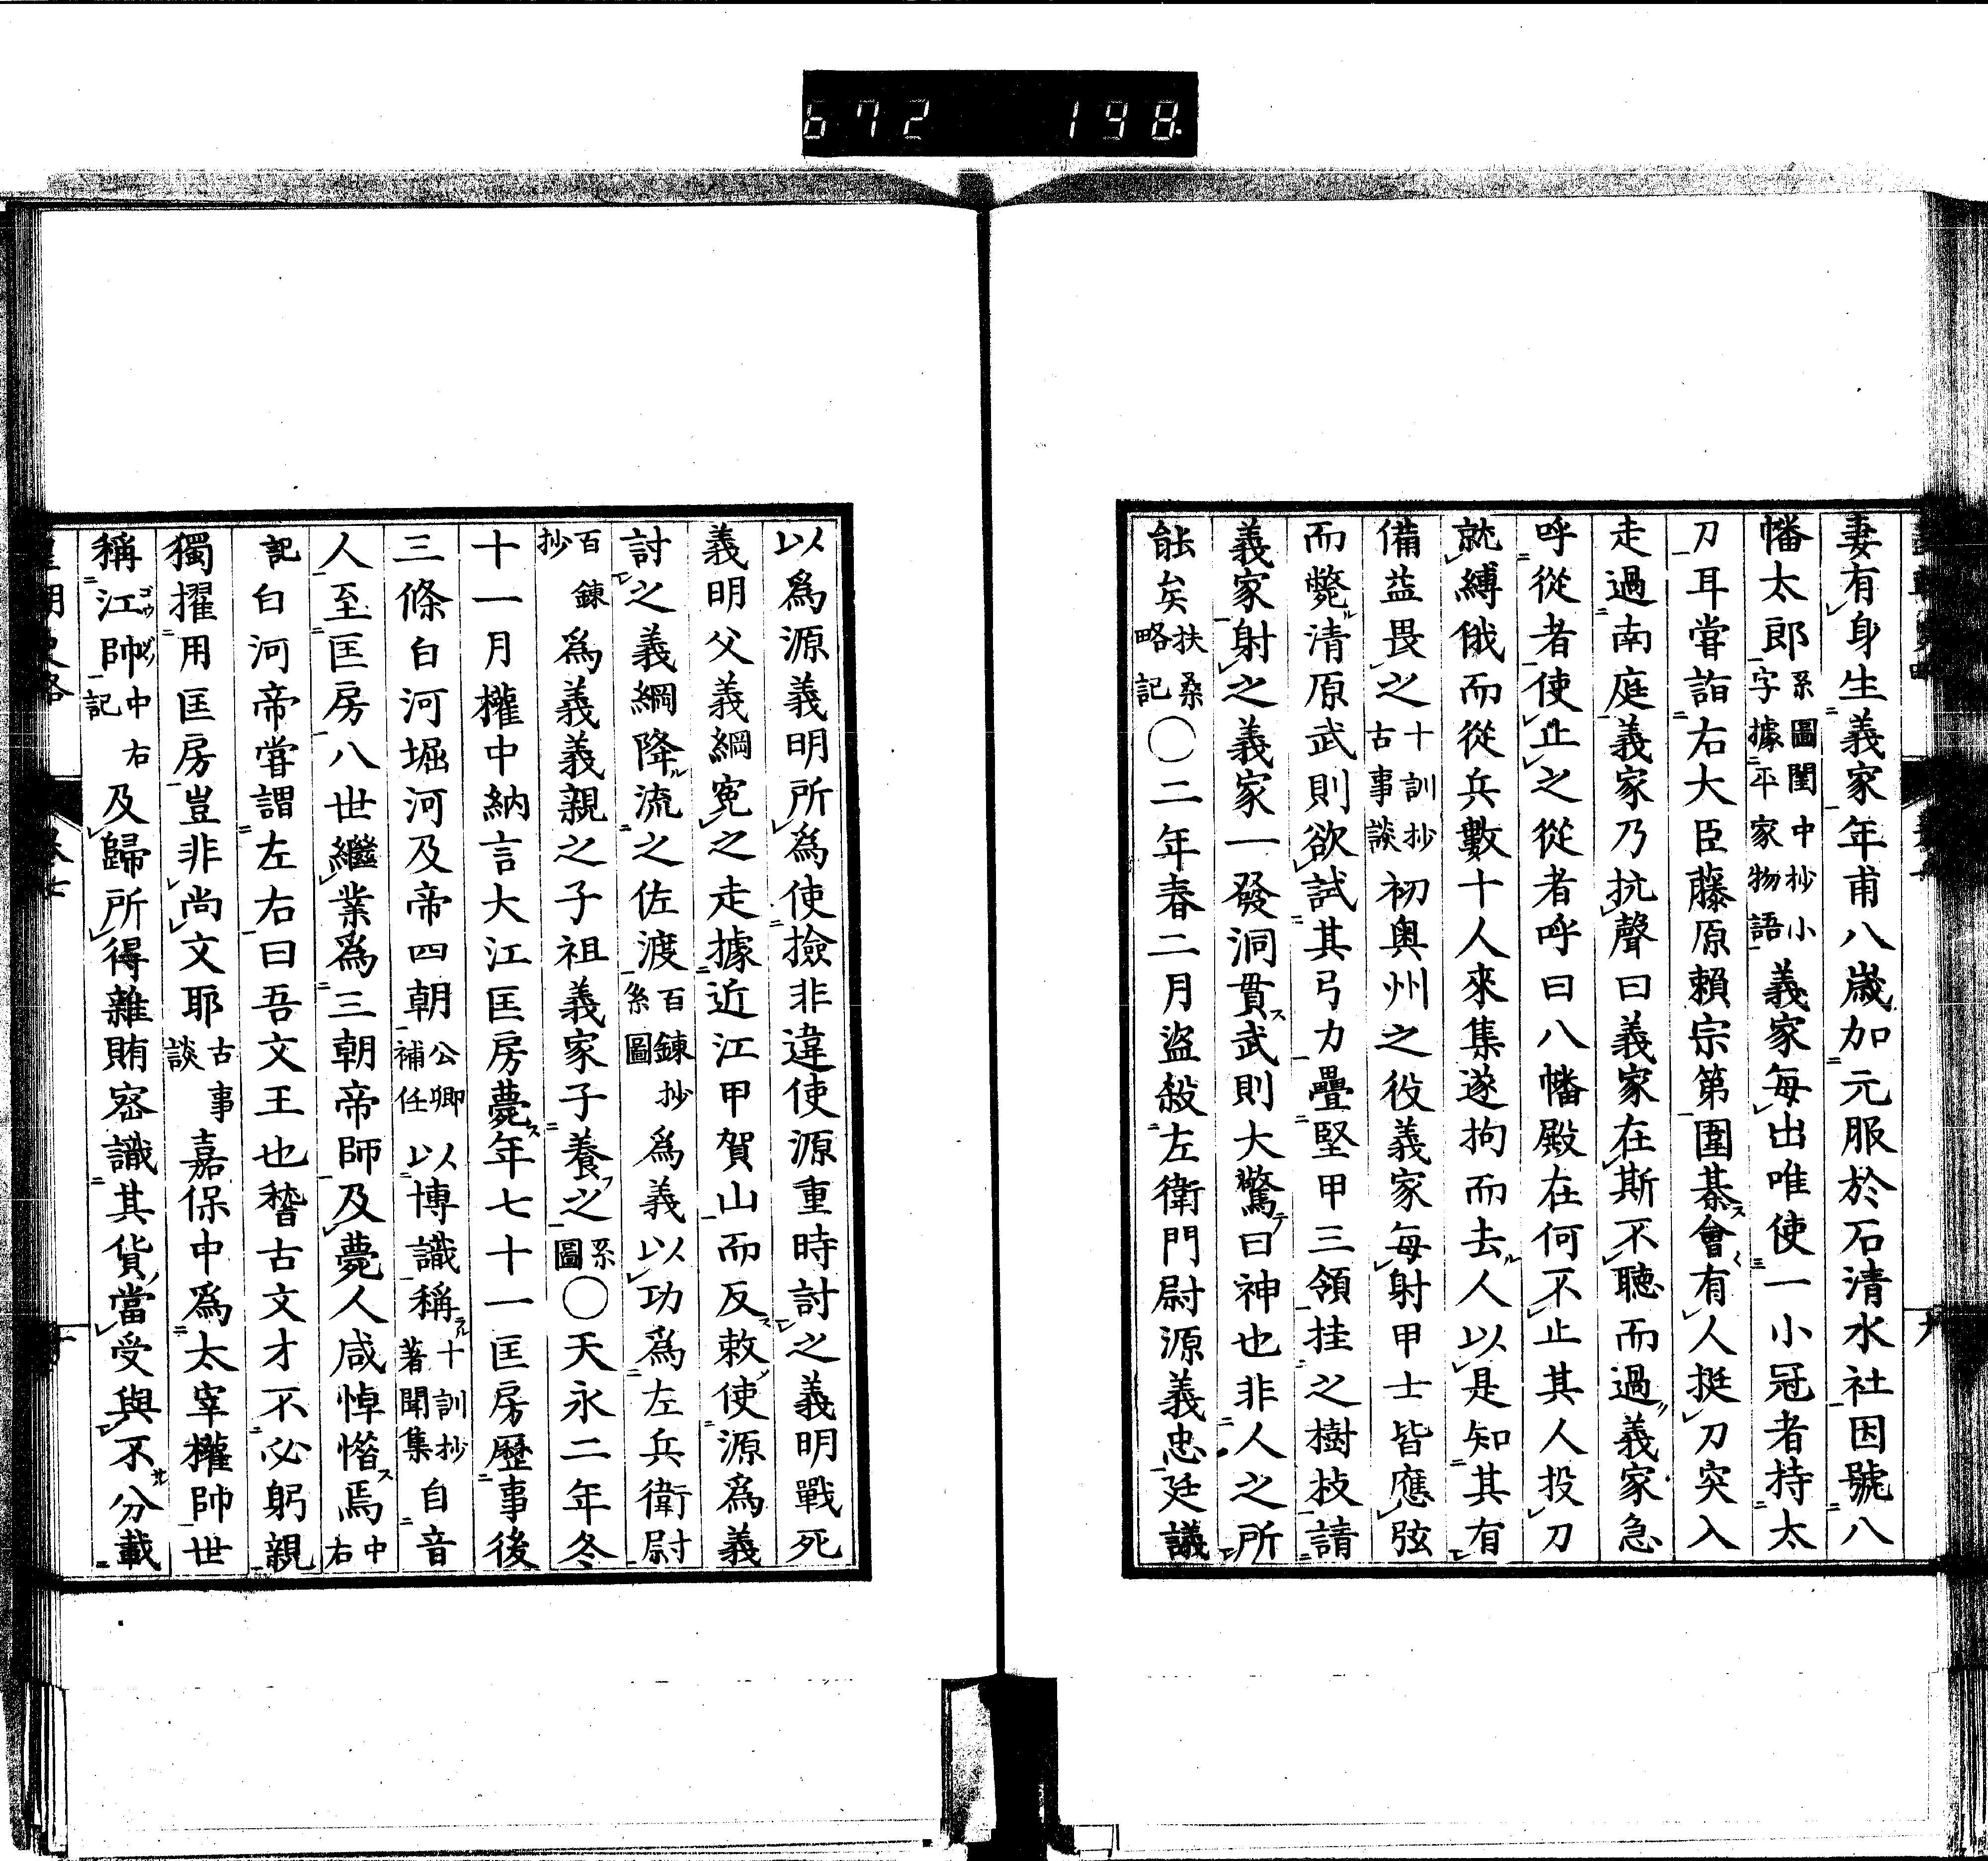 672 198
妻有身生義家年甫八歲加元服於石清水社因號八
幡太郎系圖閨中抄小字據平家物語義家每出唯使一小冠者持太
刀耳嘗詣右大臣藤原賴宗第圍棊會有人挺刀突入
走過南庭義家乃抗聲曰義家在斯不聽而過義家急
呼從者使止之從者呼曰八幡殿在何不止其人投刀
就縛俄而從兵數十人來集遂拘而去人以是知其有
備益畏之十訓抄古事談初奧州之役義家每射甲士皆應弦
而斃清原武則欲試其弓力疊堅甲三領挂之樹枝請
義家射之義家一發洞貫武則大驚曰神也非人之所
能矣扶桑略記〇二年春二月盜殺左衛門尉源義忠廷議
以爲源義明所爲使撿非違使源重時討之義明戰死
義明父義綱寃之走據近江甲賀山而反敕使源爲義
討之義綱降流之佐渡百鍊抄系圖爲義以功爲左兵衛尉
百鍊抄爲義義親之子祖義家子養之系圖〇天永二年冬
十一月權中納言大江匡房薨年七十一匡房歷事後
三條白河堀河及帝四朝公卿補任以博識稱十訓抄著聞集自音
人至匡房八世繼業爲三朝帝師及薨人咸悼惜焉中右
記白河帝嘗謂左右曰吾文王也稽古文才不必躬親
獨擢用匡房豈非尚文耶古事談嘉保中爲太宰權帥世
稱江帥中右記及歸所得雜賄密識其貨當受與不分載